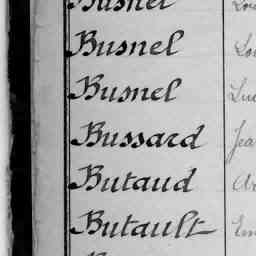 Busnel Lou
Busnel Lou
Busnel Luc
Bussard Jea
Butaud
Butault Em